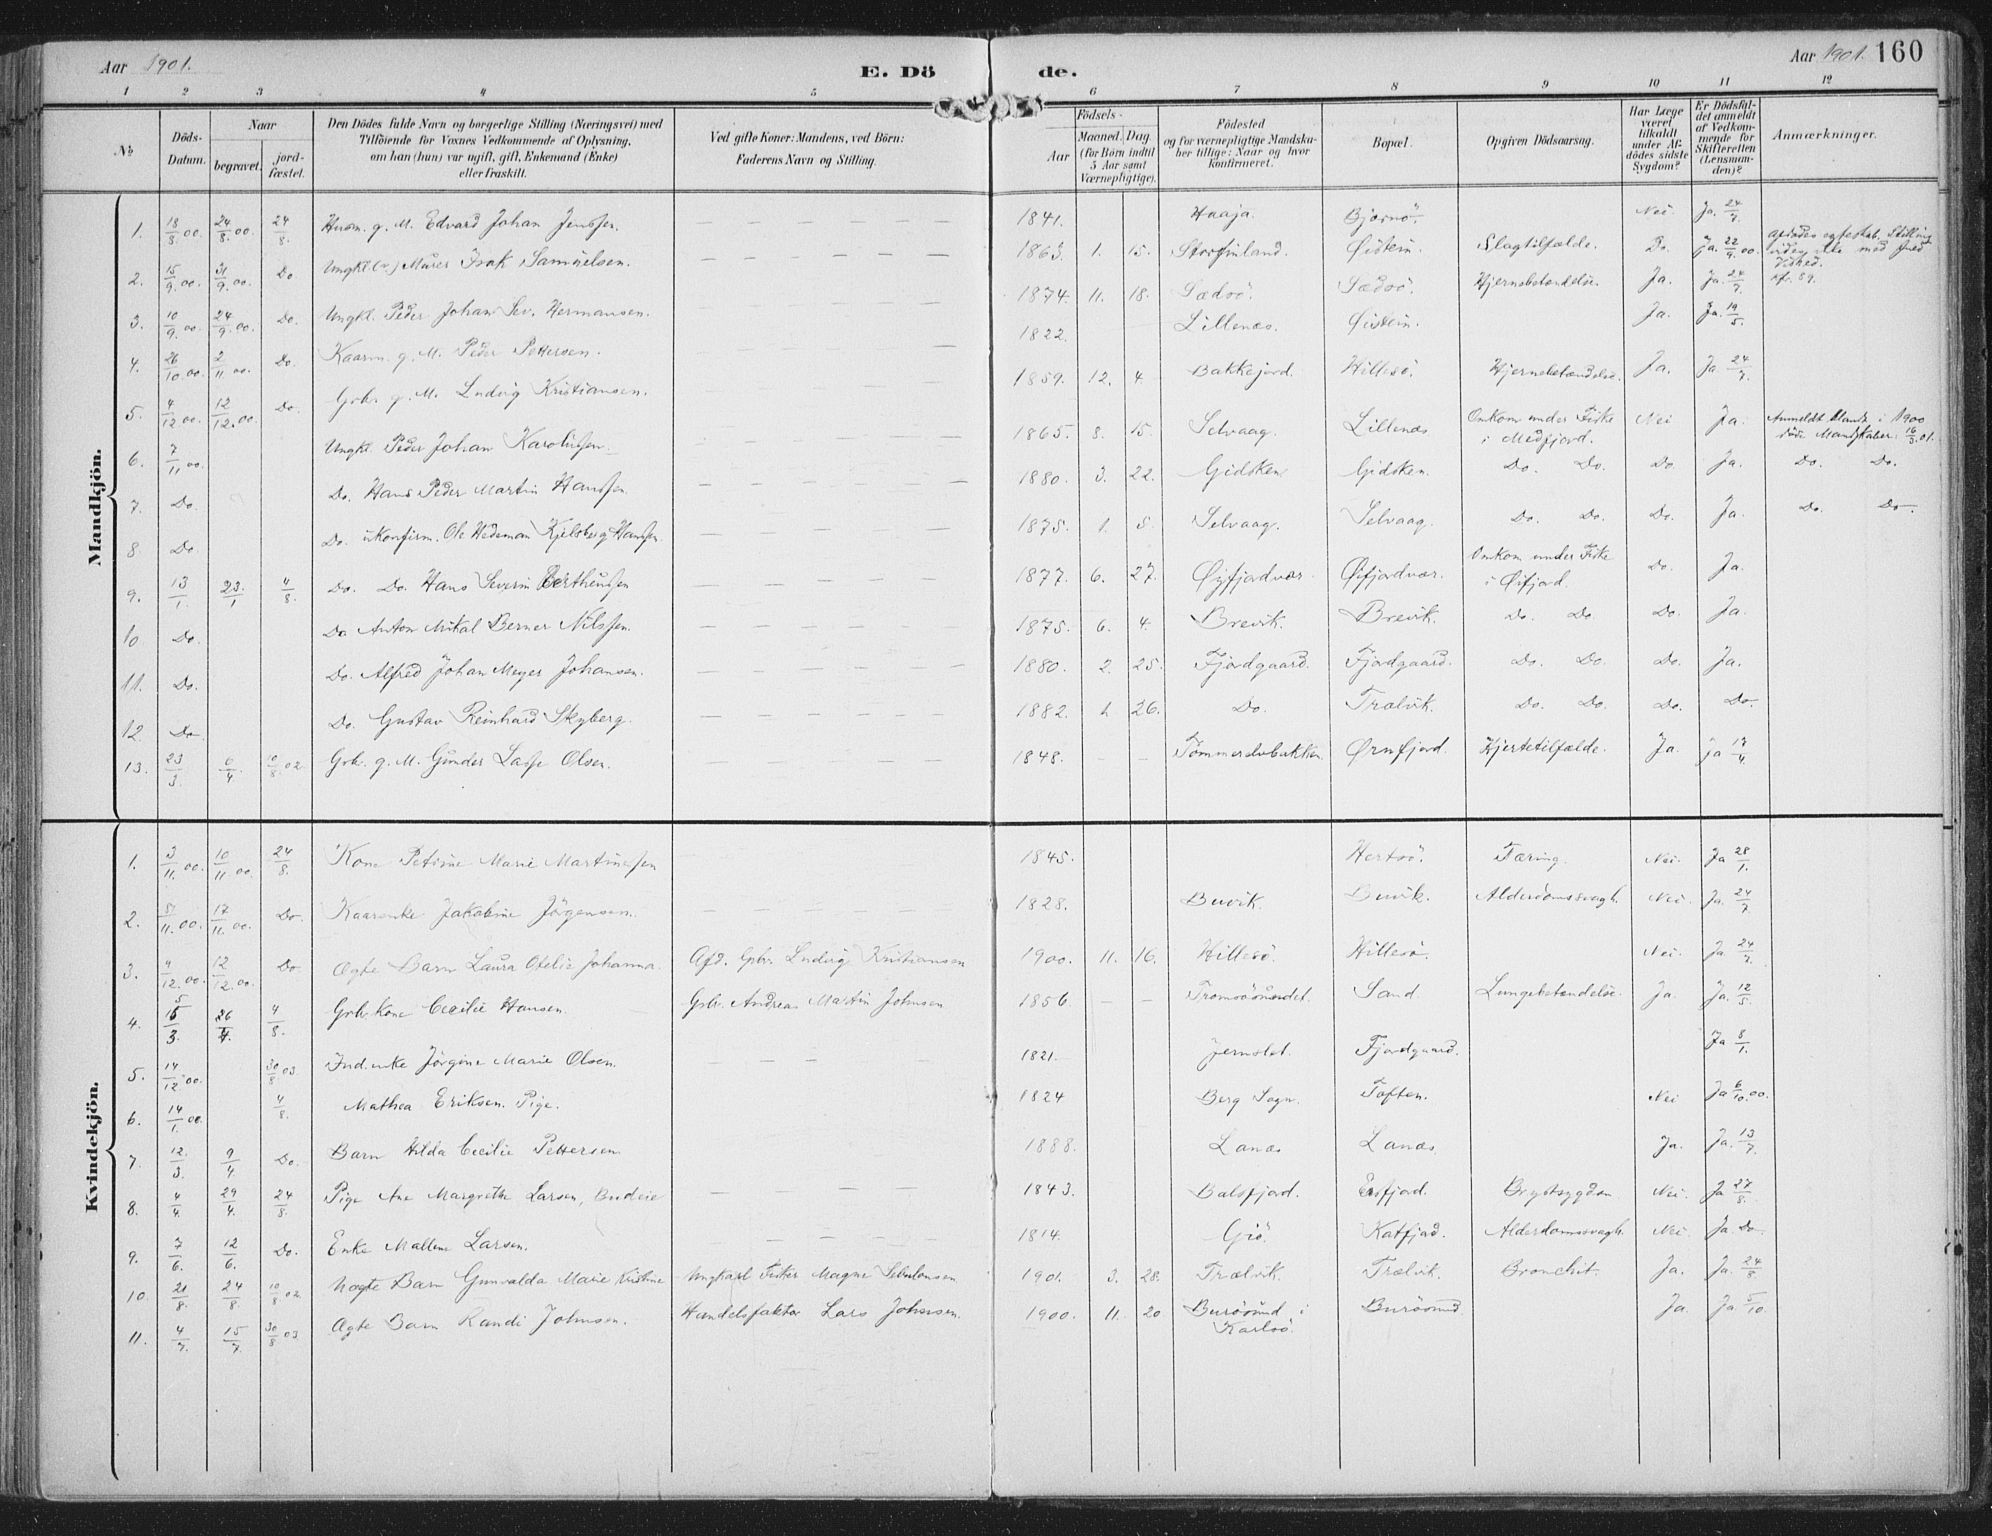 Aar 1901.
E. Dö
de.
Aar 1901. 160
1 2 3 4 5 6 7 8 9 10 11 12
No
Döds-Datum.
Naar
begravet.
jord-fæstet.
Den Dödes fulde Navn og borgerlige Stilling (Næringsvei) med
Tilföiende for Voxnes Vedkommende af Oplysning,
om han (hun) var ugift, gift, Enkemand (Enke)
eller fraskilt.
Ved gifte Koner: Mandens, ved Börn:
Faderens Navn og Stilling.
Födsels-
Aar
Maaned. Dag.
(for Börn indtil
5 Aar samt
Værnepligtige).
Födested
og for værnepligtige Mandska-
ber tillige: Naar og hvor
konfirmeret.
Bopæl.
Opgiven Dödsaarsag.
Har Læge
været
tilkaldt
under Af-
dödes sidste
Sygdom?
Er Dödsfal-
det anmeldt
af Vedkom-
mende for
Skifteretten
(Lensman-
den)?
Anmærkninger.
Mandkjön.
1. 18/8 00. 24/8 00. 24/8. Husm. g. M. Edvard Johan Jenssen. 1841. Haaja. Bjornö. Nei. Ja. 24/7.
2. 15/9 00. 21/9 00. Do Ungkl. Murer Isak Samuelsen. 1863. 1. 15. Storfinland. Öistein. Slagtilfælde. Do. Ja. 22/9 00.
3. 10/9 00. 24/9 00. Do. Ungkl. Peder Johan Sev. Hermansen. 1874. 11. 18. Sædsö. Sædsö. Hjernebetændelse. Ja. Ja. 24/7
4. 26/10 00. 2/11 00. Do. Kaarm. g. M. Peder Pettersen. 1822. Lillenæs. Öistein. Ja. Ja. 19/5.
5. 4/12 00. 12/12 00. Do. Grbr. g. M. Ludvig Kristiansen. 1859. 12. 4 Bakkejord. Hillesö. Hjernebetændelse. Ja. Ja 24/7.
6. 7/11 00. Ungkl. Peder Johan Karolussen. 1865. 8. 15. Selvaag. Lillenæs Omkom under Fiske i Medfjord. Nei Ja. Anmeldt blandt i 1900 döde Mandskaber 16/3 01.
7. Do. Do. Hans Peder Martin Hanssen. 1880. 3. 22. Gidsken Gidsken. Do. Do. Do. Ja. Do. Do.
8. Do. Do. ukonfirm. Ole Hedeman Kjelsberg Hanssen. 1875. 1. 5. Selvaag. Selvaag. Do. Do. Do. Ja. Do. Do.
9. 13/1. 23./1 4/8. Do. Do. Hans Severin Bertheussen 1877. 6. 27. Øyfjordvær Øifjordvær. Omkom under Fiske i Øifjord. Do. Ja.
10 Do. Do Anton Mikal Berner Nilssen. 1875. 6. 4. Brevik. Brevik. Do. Do. Do. Ja.
11. Do. Do. Alfred Johan Meyer Johansen. 1880. 2. 25. Fjordgaard. Fjordgaard. Do. Do. Do. Ja.
12. Do Do. Gustav Reinhard Skyberg. 1882. 1. 26. Do. Trælvik. Do. Do. Do. Do.
13. 23/3. 6/4. 10/8 02. Grbr. g. M. Gunder Lasse Olsen. 1848. Tömmerelvbakken Ørnfjord. Hjertetilfælde. Ja. Ja 17/4.
Kvindekjön.
1. 3/11 00. 10/11 00. 24/8. Kone Petrine Marie Martinussen 1845. Hertsö. Tæring. Nei. Ja 28/1.
2. 8/11 00. 17/11 00. Do Kaarenke Jakobine Jörgensen. 1828. Buvik. Buvik. Alderdomssvagh. Nei. Ja. 24/7
3. 9/12 00. 12/12 00. Do Ægte Barn Laura Ofelie Johanna. Afd. Gbr. Ludvig Kristiansen 1900. 11. 16. Hillesö. Hillesö. Nei. Ja 24/7.
4. 15/3. 26/4. 4/8. Grbr. Kone Cecilie Hansen. Grbr. Andreas Martin Johnsen 1856 Tromsösundet. Sand. Lungebetændelse. Ja. Ja. 12/5.
5. 14/12 00. 30/8 03. Ind. enke Jörgine Marie Olsen. 1821. Jernslet. Fjordgaard. Ja 8/1.
6. 14/1. 00. 4/8. Mathea Eriksen. Pige. 1824 Berg Sogn. Toften. Nei Ja 6/10 00.
7. 12/3. 9/4 Do. Barn Hilda Cecilie Pettersen 1888. Lanæs Lanæs Ja. Ja. 13/7.
8. 4/4. 29/4. 24/8. Pige Ane Margrethe Larsen, Budeie 1843. Balsfjord. Ersfjord. Brystsygdom Nei. Ja 27/8.
9. 7/6. 12/6. Do. Enke Mallene Larsen. 1814. Giö. Katfjord. Alderdomssvagh. Nei Ja. Do
10. 21/8. 24/8. 10/8 02. Uægte Barn Gunvalda Marie Kristine Ungkarl Fisker Magne Sebulonsen 1901. 3. 28. Trælvik. Trælvik. Bronchit. Ja. Ja. 24/8
11. 4/7. 15/7. 30/8 03 Ægte Barn Randi Johnsen. Handelsfaktor Lars Johnsen. 1900. 11. 20. Burösund i Karlsö. Burösund. Ja. Ja. 5/10.